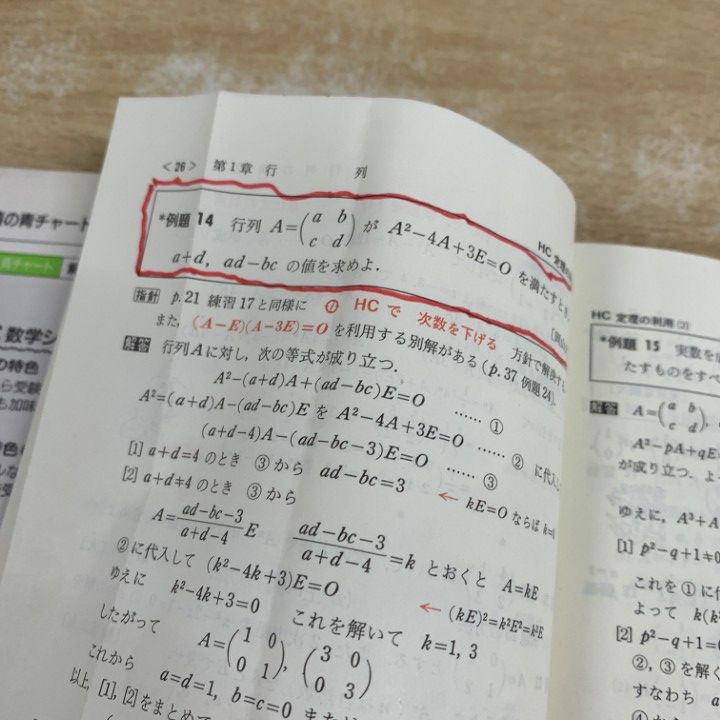 <26> 第1章 行 列
HC 定理の
*例題 14 行列 A=(a b c d) が A²-4A+3E=O を満たすとき,
a+d, ad-bc の値を求めよ.
指針 p.21 練習17と同様に ① HCで 次数を下げる 方針で解決する
また, (A-E)(A-3E)=O を利用する別解がある (p.37 例題24).
解答 行列Aに対し, 次の等式が成り立つ.
A²-(a+d)A+(ad-bc)E=O …… ①
A²=(a+d)A-(ad-bc)E を A²-4A+3E=O …… ② に代入し
(a+d-4)A-(ad-bc-3)E=O …… ③
[1] a+d=4 のとき ③から ad-bc=3 ← kE=O ならば k=0
[2] a+d≠4 のとき ③から
A=ad-bc-3/a+d-4 E ad-bc-3/a+d-4=k とおくと A=kE
②に代入して (k²-4k+3)E=O ← (kE)²=k²E²=k²E
ゆえに k²-4k+3=0 これを解いて k=1, 3
したがって A=(1 0 0 1), (3 0 0 3)
これから a=d=1, b=c=0 また
以上, [1], [2]をまとめて
の青チャート
チャート
数学シ
の特色
ら受験
も加味
HC 定理の利用 (2)
*例題 15 実数を
たすものをすべ
解答 A=(a b c d),
A²-pA+qE=
が成り立つ. よ
ゆえに, A³+A
[1] p²-q+1≠0
これを①に代
よって k(k²
[2] p²-q+1=0
②, ③を解く
すなわち a
④から